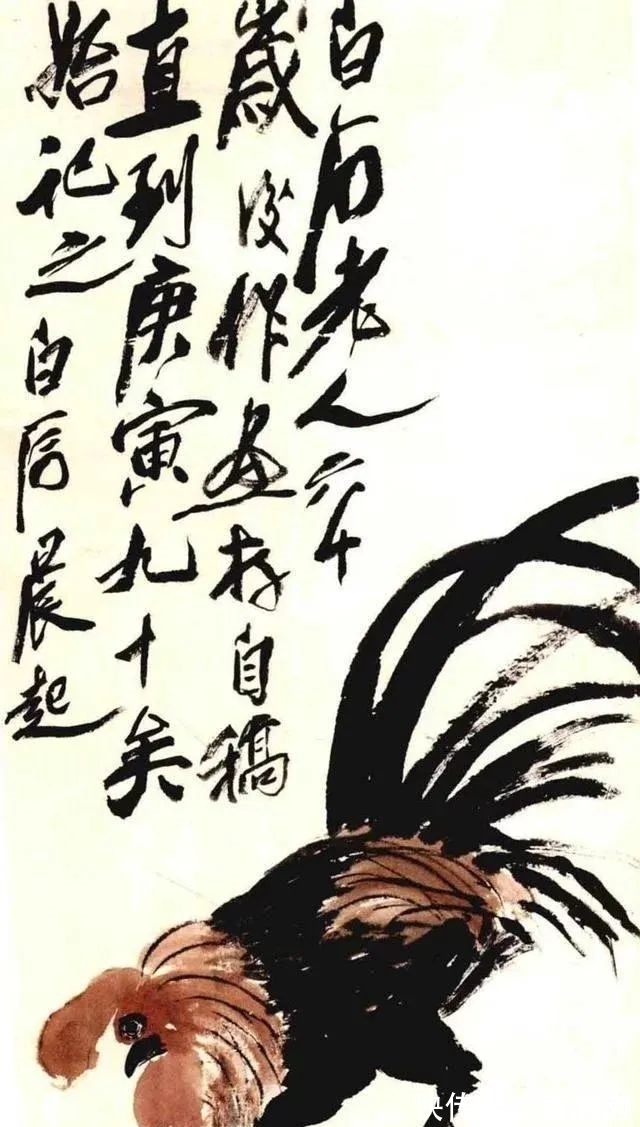 白石老人六十
歲後作画存自稿
直到庚寅九十矣
始記之白石晨起
快传